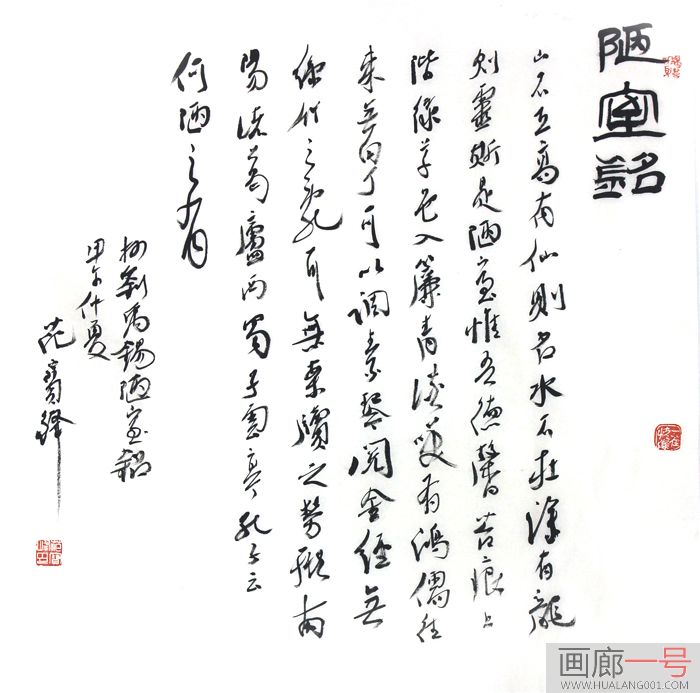 陋室銘
山不在高有仙則名水不在深有龍
則靈斯是陋室惟吾德馨苔痕上
階綠草色入簾青談笑有鴻儒往
來無白丁可以調素琴閱金經無
絲竹之亂耳無案牘之勞形南
陽諸葛廬西蜀子雲亭孔子云
何陋之有
劉禹錫陋室銘
甲午仲夏
范寶
画廊一号
WWW.HUALANG001.COM